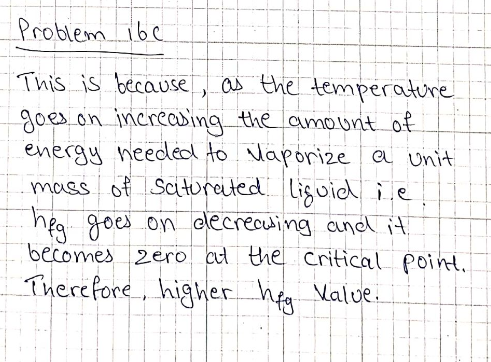 Problem 16C
This is because, as the temperature
goes on increasing the amount of
energy needed to vaporize a unit
mass of saturated liquid i.e.
hfg goes on decreasing and it
becomes zero at the critical point.
Therefore, higher hfg value.